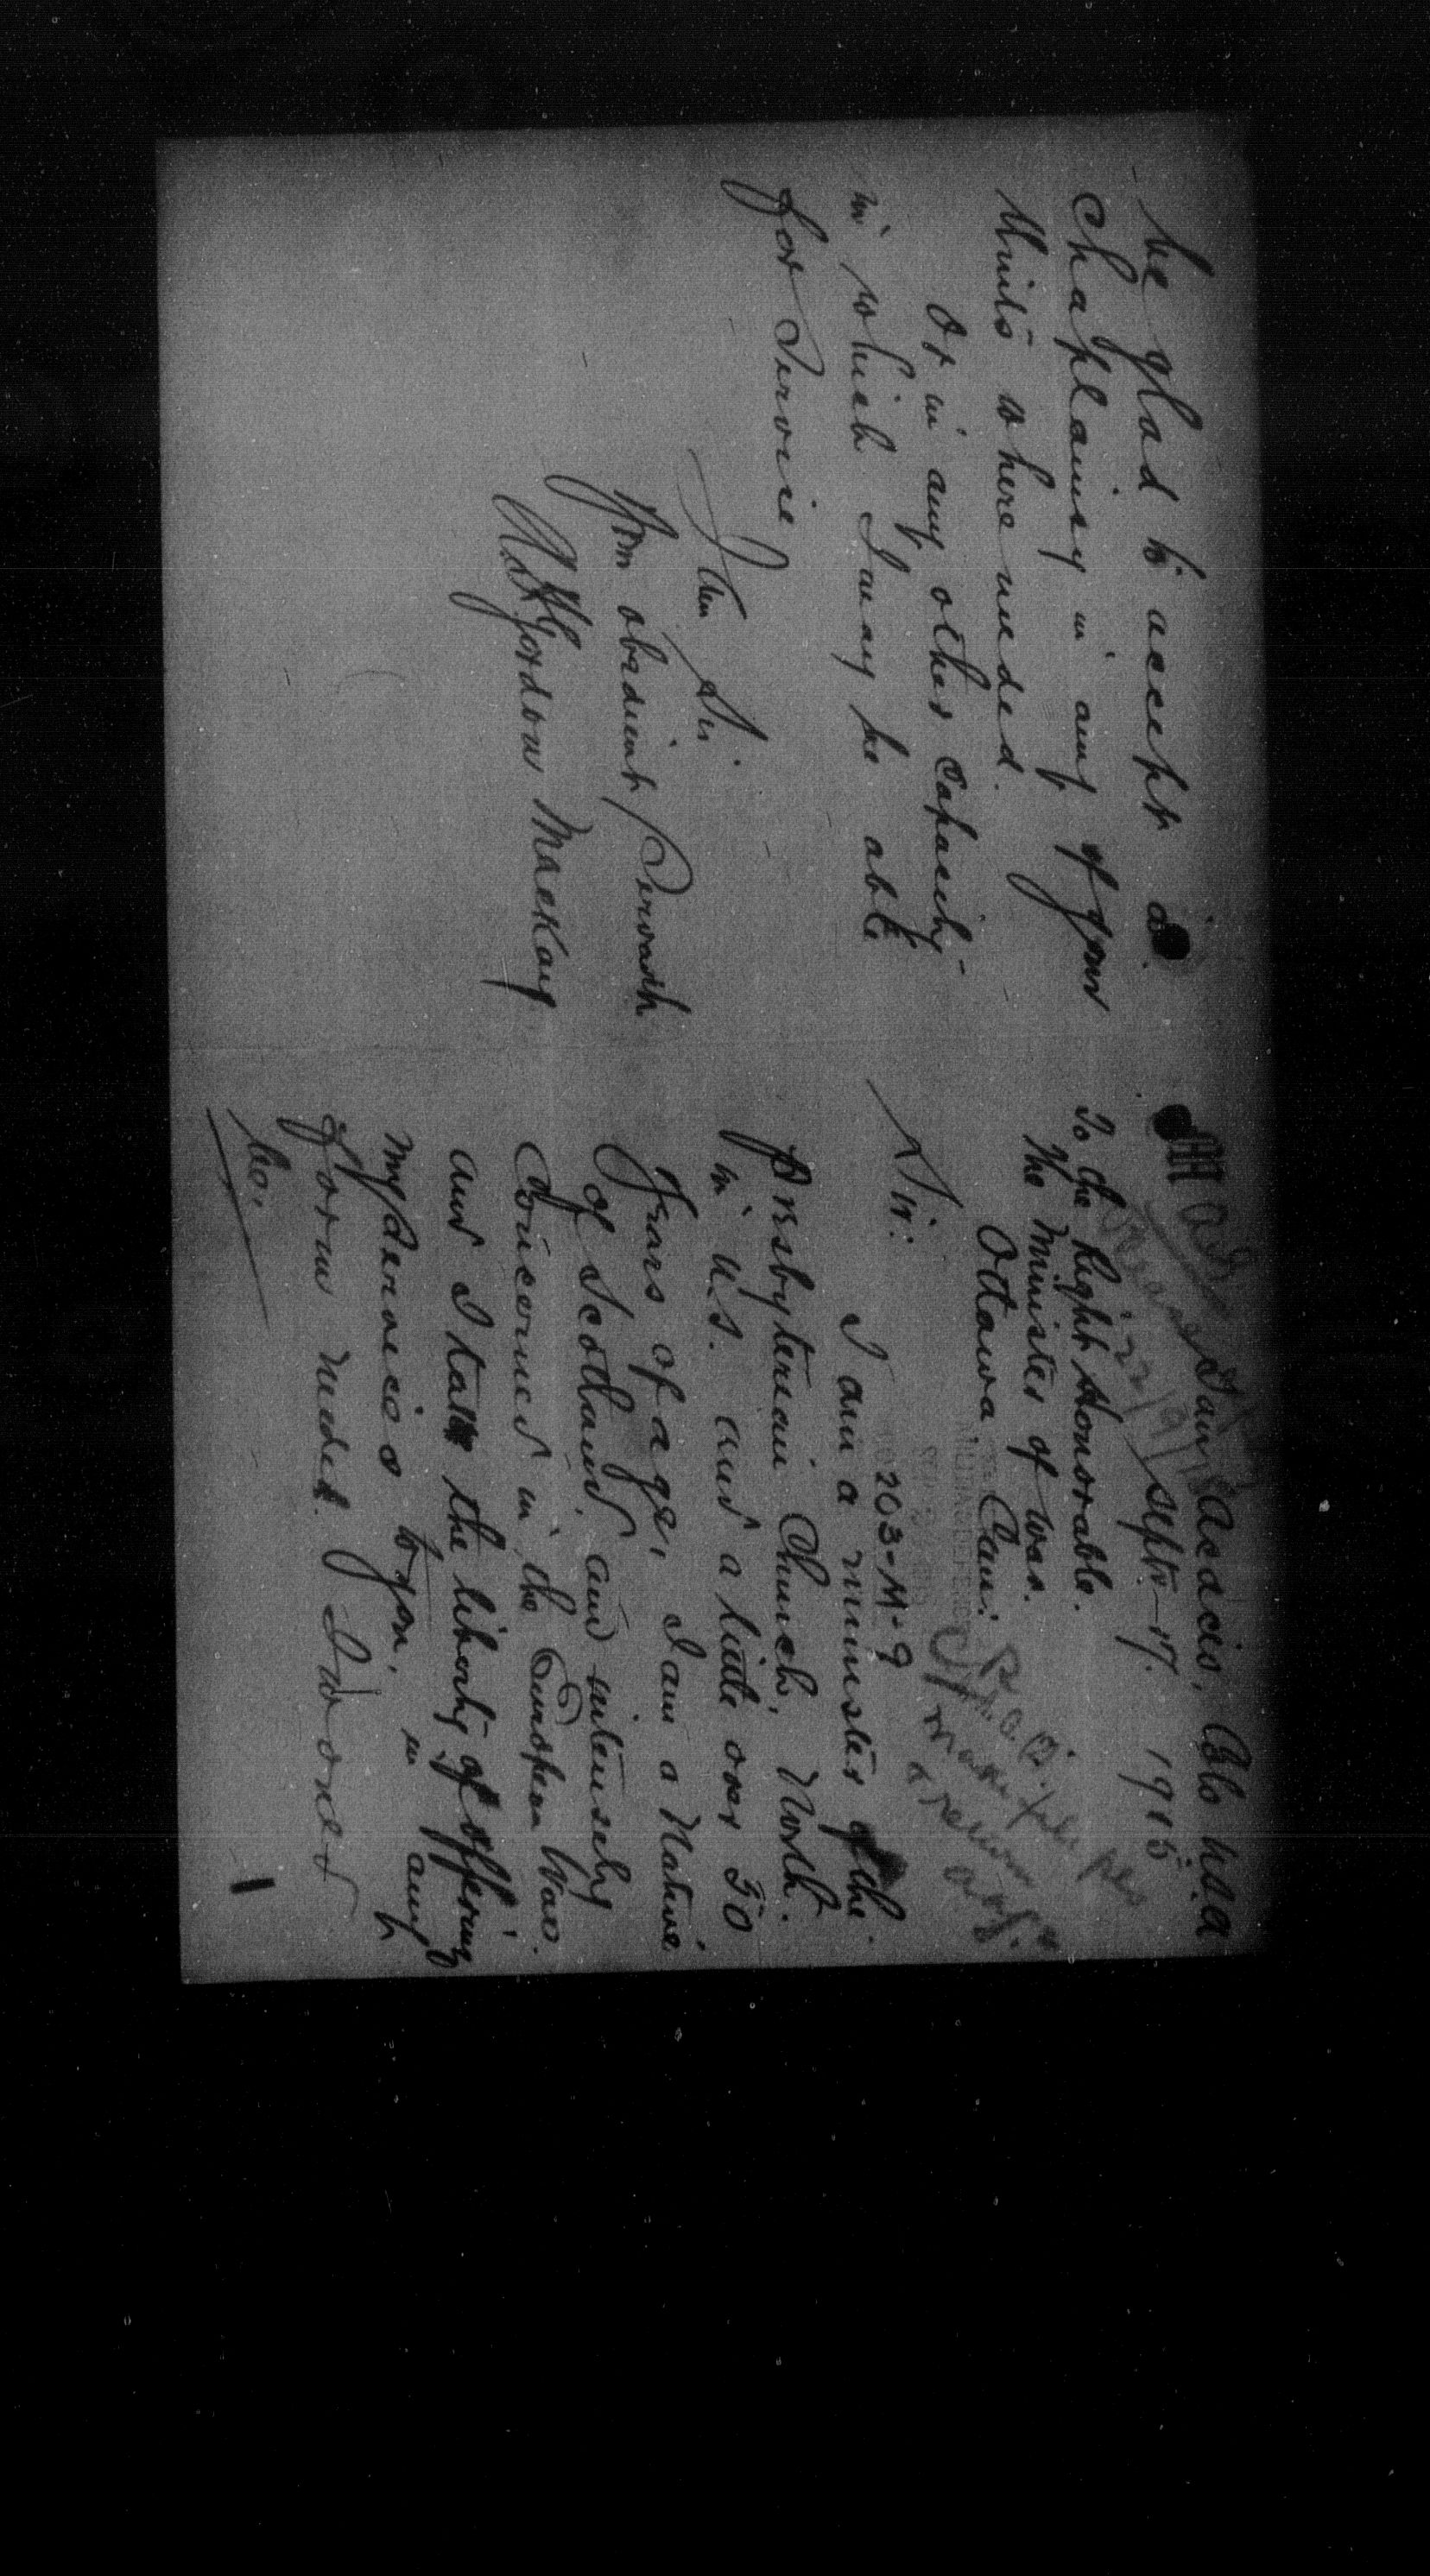 San Acacio, Colo U.S.A
Sept. 17. 1915.
To the Right Honorable.
The Minister of War.
Ottawa, Can:
203-M-9
Sir:
I am a minister of the
Presbyterian Church, North.
in U.S. and a little over 50
Years of age, I am a Native
of Scotland, and intensely
Concerned in the European War.
and I take the liberty of offering
my services to you, in any
form needed. I would
be,
be glad to accept a
Chaplaincy in any of your
Units where needed.
Or in any other capacity
in which I may be able
for Service
I am Sir.
Your obedient Servant
Gordon MacKay